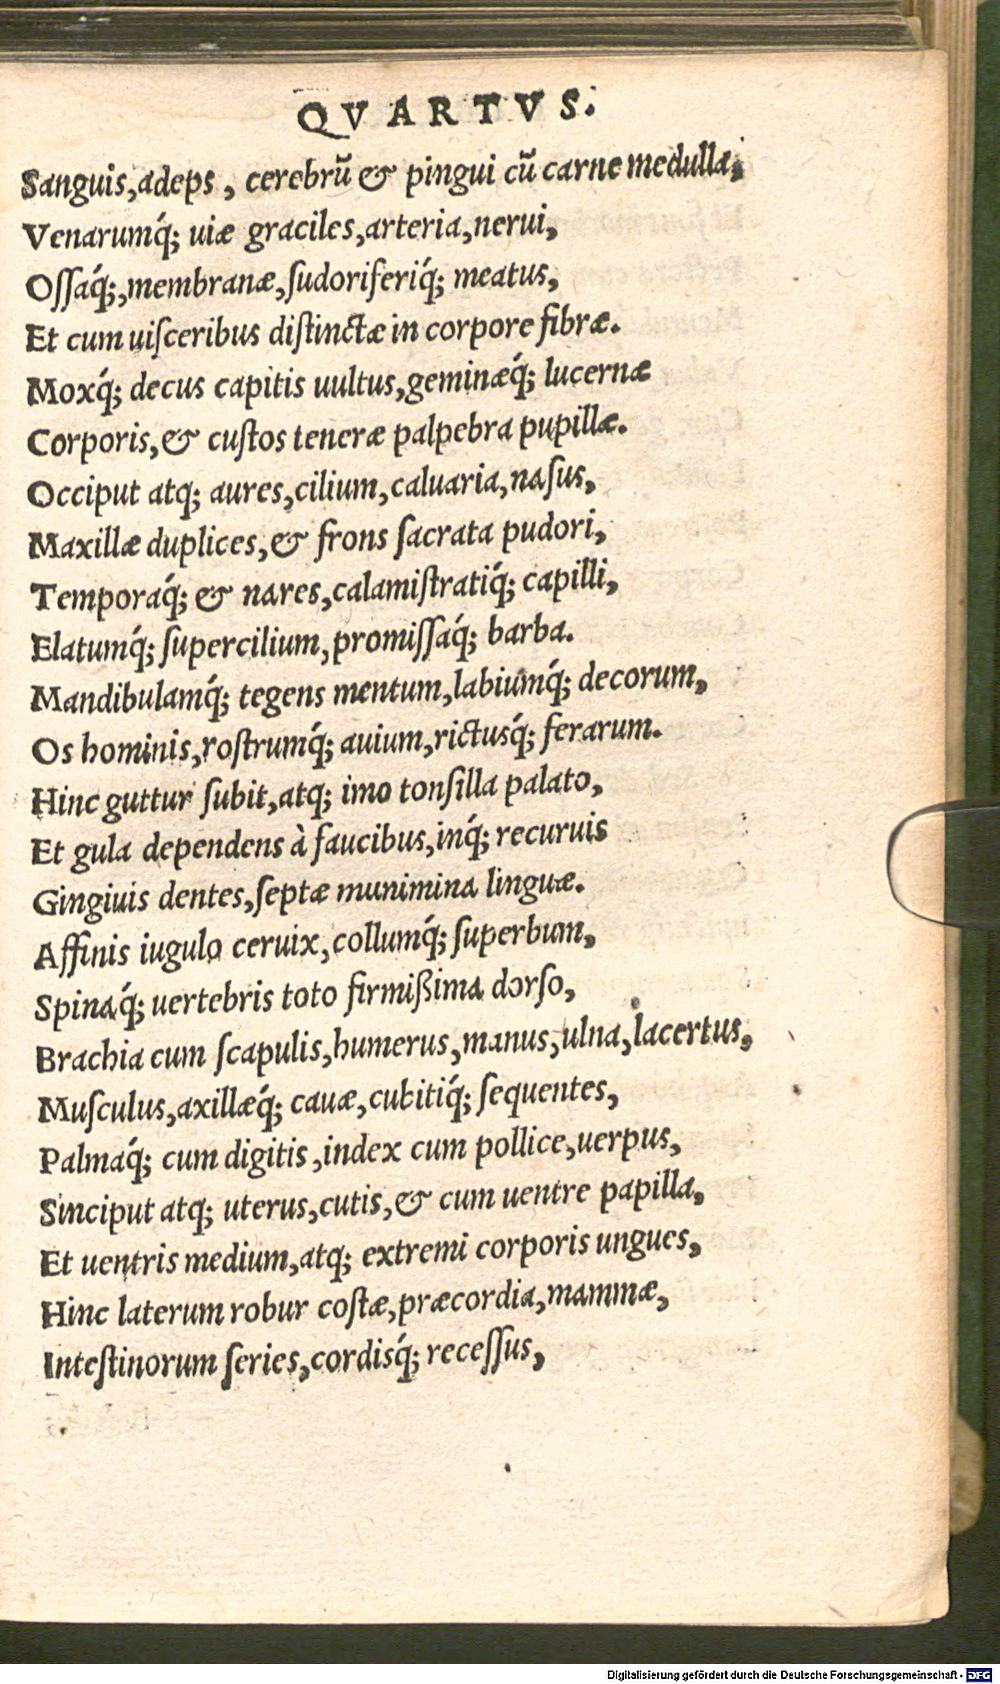 QVARTVS.
Sanguis,adeps, cerebrũ & pingui cũ carne medulla,
Venarumq́; uiæ graciles,arteria,nerui,
Oſſaq́;,membranæ,ſudoriferiq́; meatus,
Et cum uiſceribus diſtinctæ in corpore fibræ.
Moxq́; decus capitis uultus,geminæq́; lucernæ
Corporis,& cuſtos teneræ palpebra pupillæ.
Occiput atq; aures,cilium,caluaria,naſus,
Maxillæ duplices,& frons ſacrata pudori,
Temporaq́; & nares,calamiſtratiq́; capilli,
Elatumq́; ſupercilium,promiſſaq́; barba.
Mandibulamq́; tegens mentum,labiumq́; decorum,
Os hominis,roſtrumq́; auium,rictusq́; ferarum.
Hinc guttur ſubit,atq; imo tonſilla palato,
Et gula dependens à faucibus,inq́; recuruis
Gingiuis dentes,ſeptæ munimina linguæ.
Affinis iugulo ceruix,collumq́; ſuperbum,
Spinaq́; uertebris toto firmißima dorſo,
Brachia cum ſcapulis,humerus,manus,ulna,lacertus,
Muſculus,axillæq́; cauæ,cubitiq́; ſequentes,
Palmaq́; cum digitis,index cum pollice,uerpus,
Sinciput atq; uterus,cutis,& cum uentre papilla,
Et uentris medium,atq; extremi corporis ungues,
Hinc laterum robur coſtæ,præcordia,mammæ,
Inteſtinorum ſeries,cordisq́; receſſus,
Digitalisierung gefördert durch die Deutsche Forschungsgemeinschaft - DFG